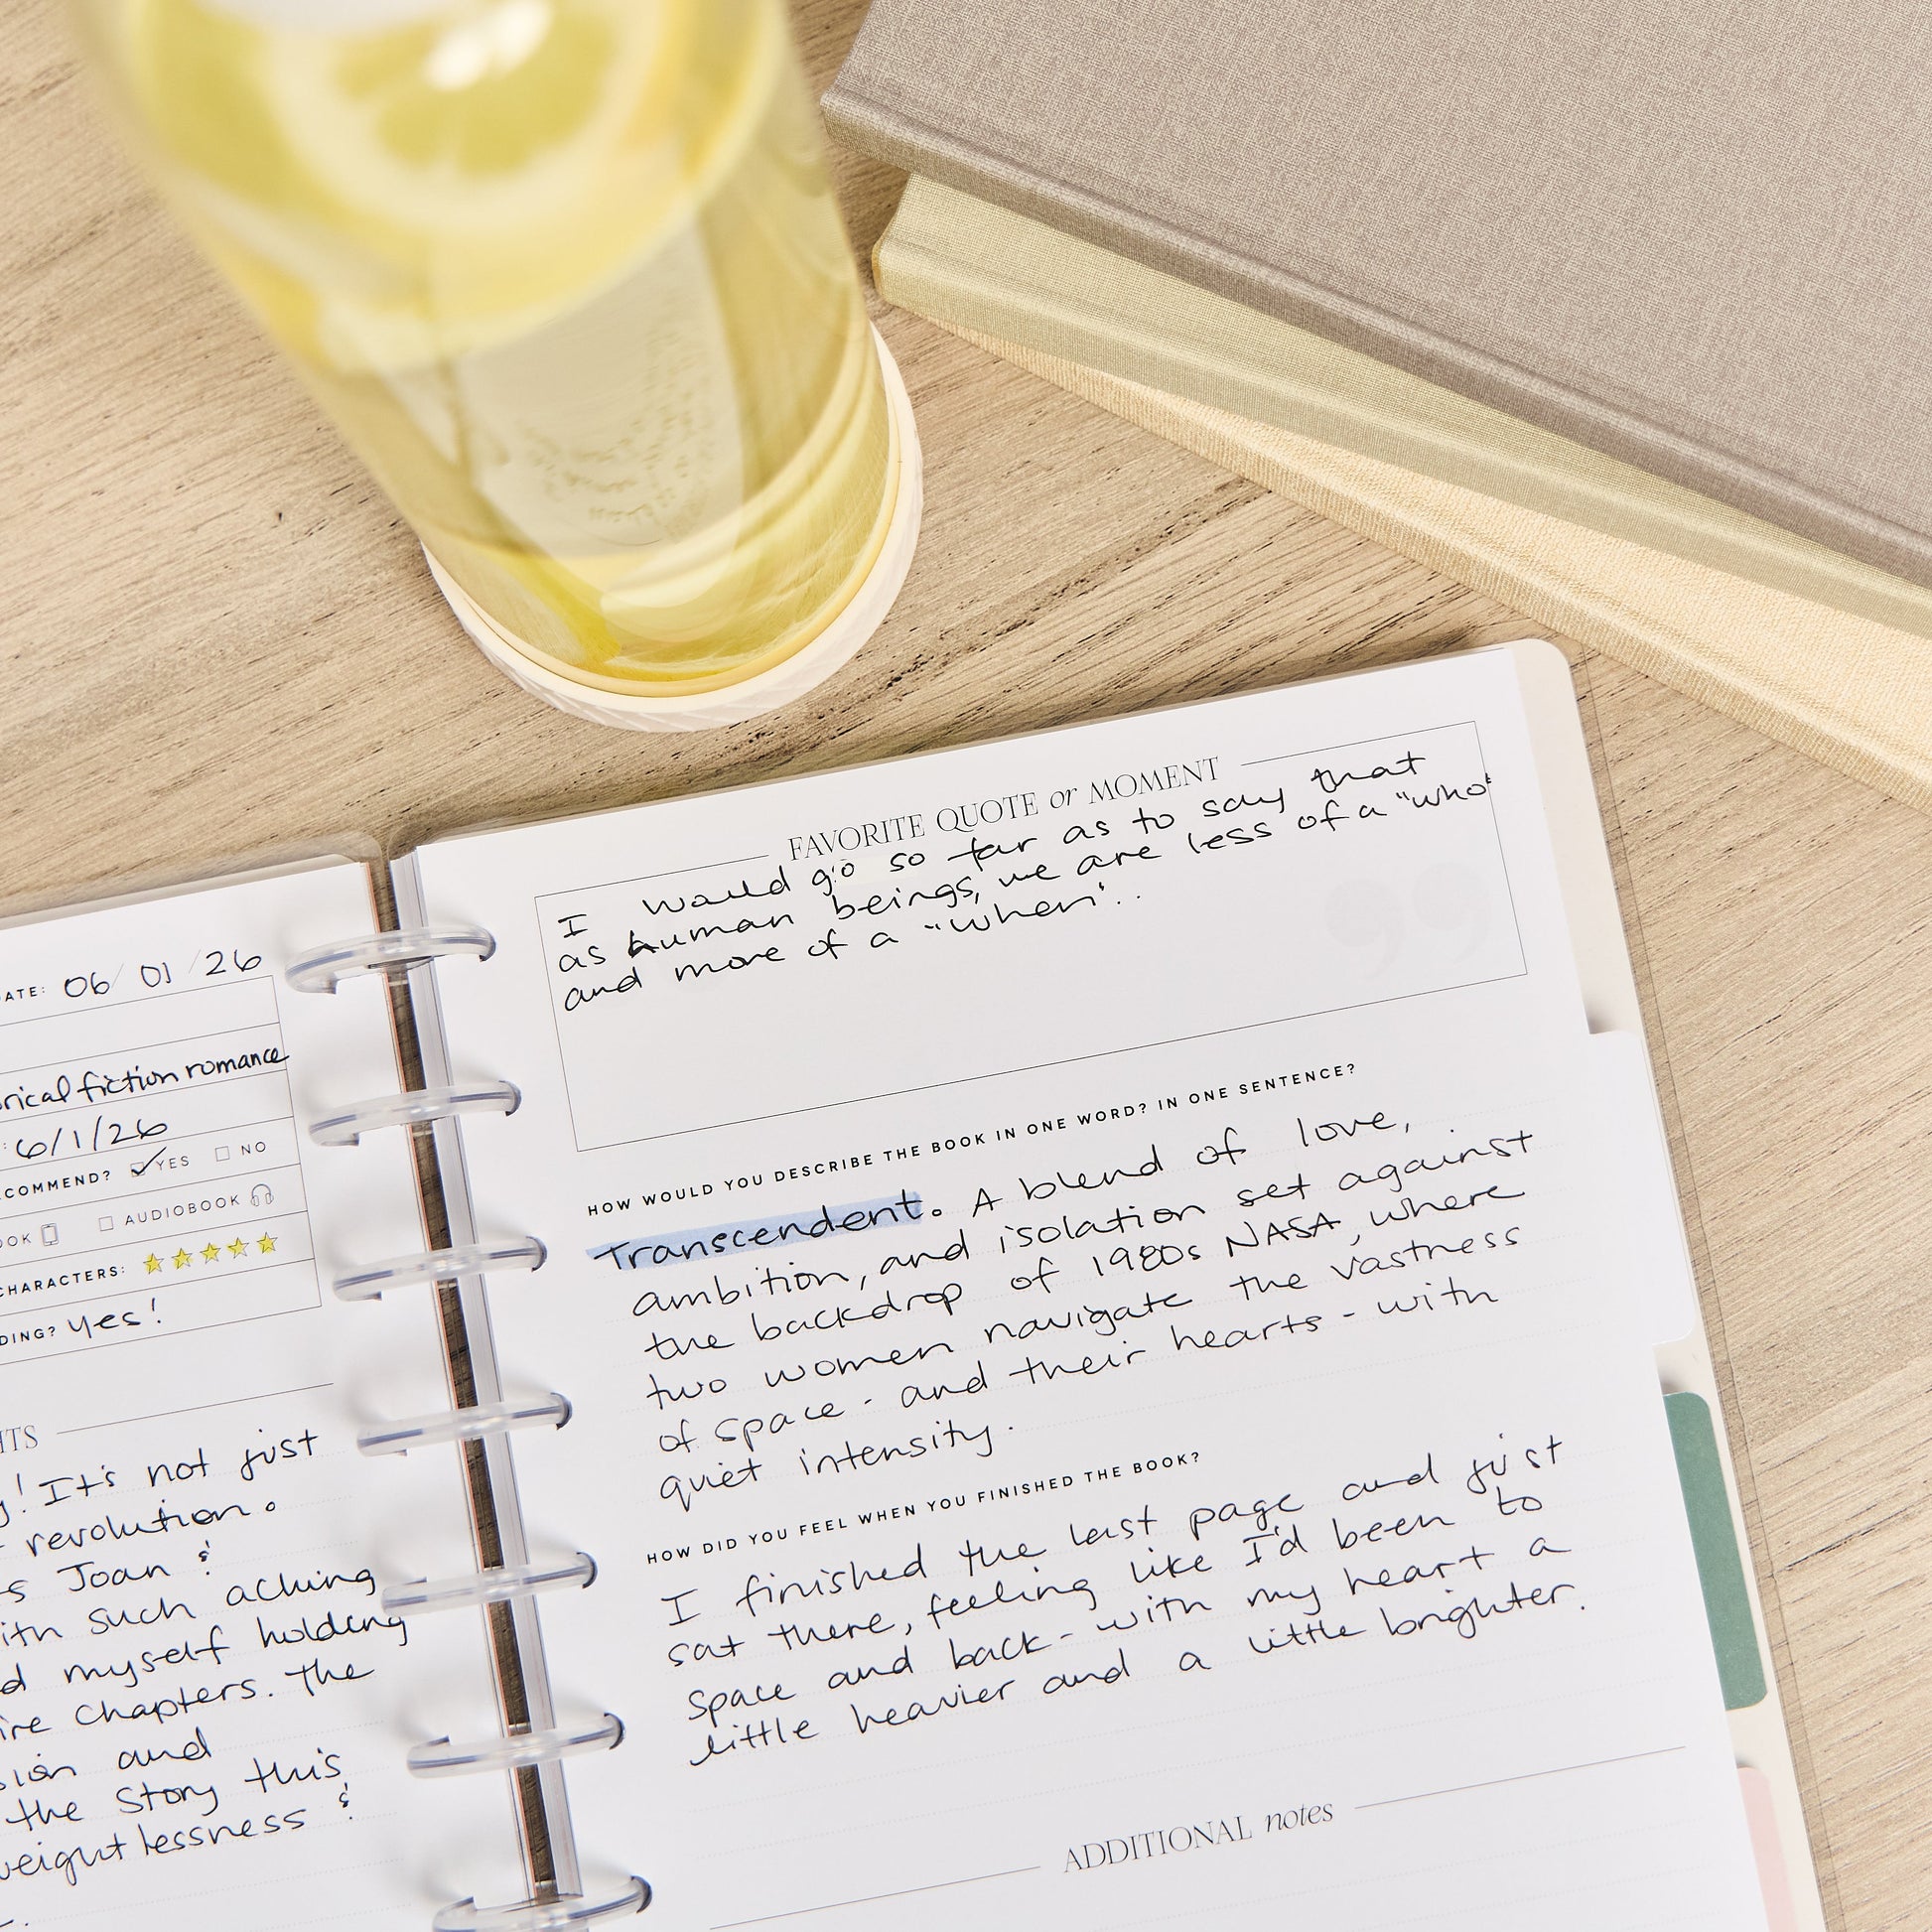 DATE: 06/01/26
rical fiction romance
: 6/1/26
COMMEND? YES NO
OOK AUDIOBOOK
CHARACTERS:
DING? yes!
! It's not just
revolution.
Joan &
such aching
myself holding
chapters. The
and
the story this
weightlessness &
FAVORITE QUOTE or MOMENT
I would go so far as to say that
as human beings, we are less of a "who"
and more of a "when"..
HOW WOULD YOU DESCRIBE THE BOOK IN ONE WORD? IN ONE SENTENCE?
Transcendent. A blend of love,
ambition, and isolation set against
the backdrop of 1980s NASA, where
two women navigate the vastness
of space - and their hearts - with
quiet intensity.
HOW DID YOU FEEL WHEN YOU FINISHED THE BOOK?
I finished the last page and just
sat there, feeling like I'd been to
space and back - with my heart a
little heavier and a little brighter.
ADDITIONAL notes